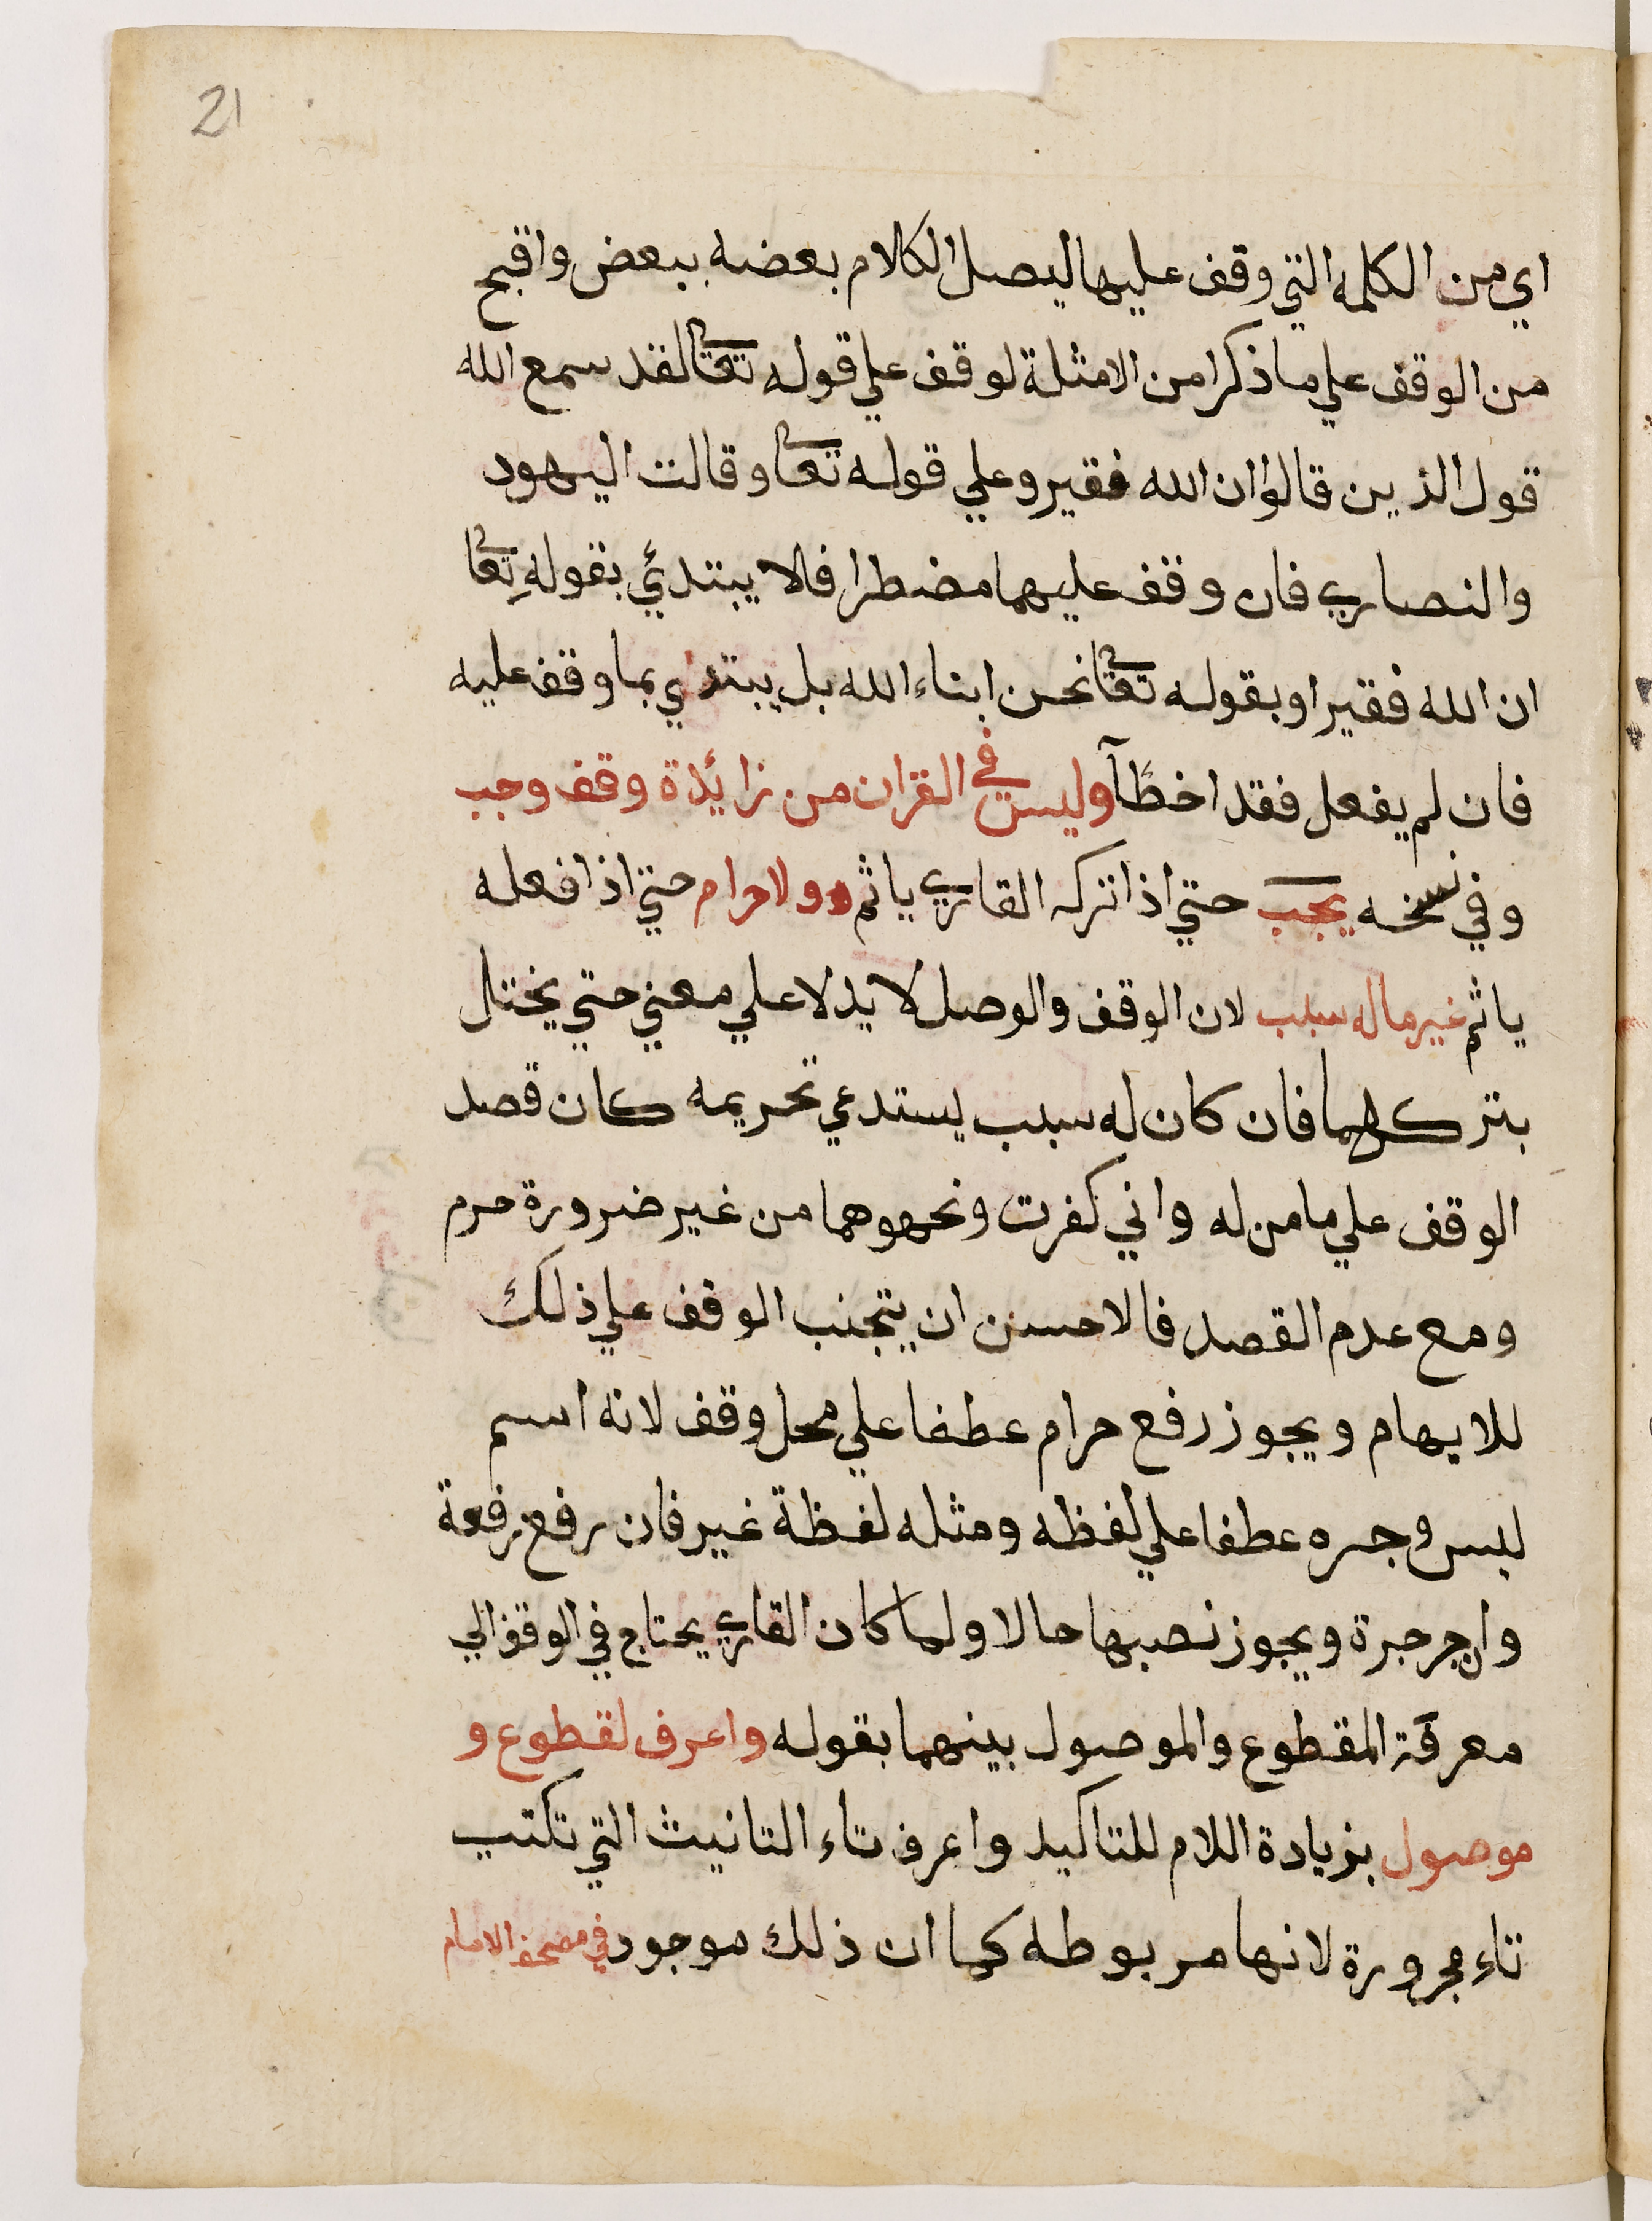 21
اي من الكلمه التي وقف عليها ليصل الكلام بعضه ببعض واقبح
من الوقف علي ما ذكرا من الامثلة لوقف علي قوله تعا لقد سمع الله
قول الذين قالوا ان الله فقير وعلي قوله تعا وقالت اليهود
والنصاري فان وقف عليهما مضطرا فالا يبتدئ بقوله تعا
ان الله فقير او بقوله تعا نحن ابناء الله بل يبتدي بما وقف عليه
فان لم يفعل فقد اخطأ وليس في القران من زائدة وقف وجب
وفي نسخه يجب حتي اذا تركه القاري ياثم ولا حرام حتي اذا فعله
ياثم غير ما له سبب لان الوقف والوصل لا يدلا علي معني حتي يختل
بتركهما فان كان له سبب يستدعي تحريمه كان قصد
الوقف علي ما من له واني كفرت ونحوهما من غير ضرورة حرم
ومع عدم القصد فالاحسن ان يتجنب الوقف علي ذلك
للايهام ويجوز رفع حرام عطفا علي محل وقف لانه اسم
ليس وجره عطفا علي لفظه ومثله لفظة غير فان رفع رفعة
وان جر جرة ويجوز نصبها حالا ولما كان القاري يحتاج في الوقف الي
معرفة المقطوع والموصول بينهما بقوله واعرف لقطوع و
موصول بزيادة اللام للتاكيد واعرف تاء التانيث التي تكتب
تاء مجرورة لانها مربوطه كما ان ذلك موجود في مصحف الامام